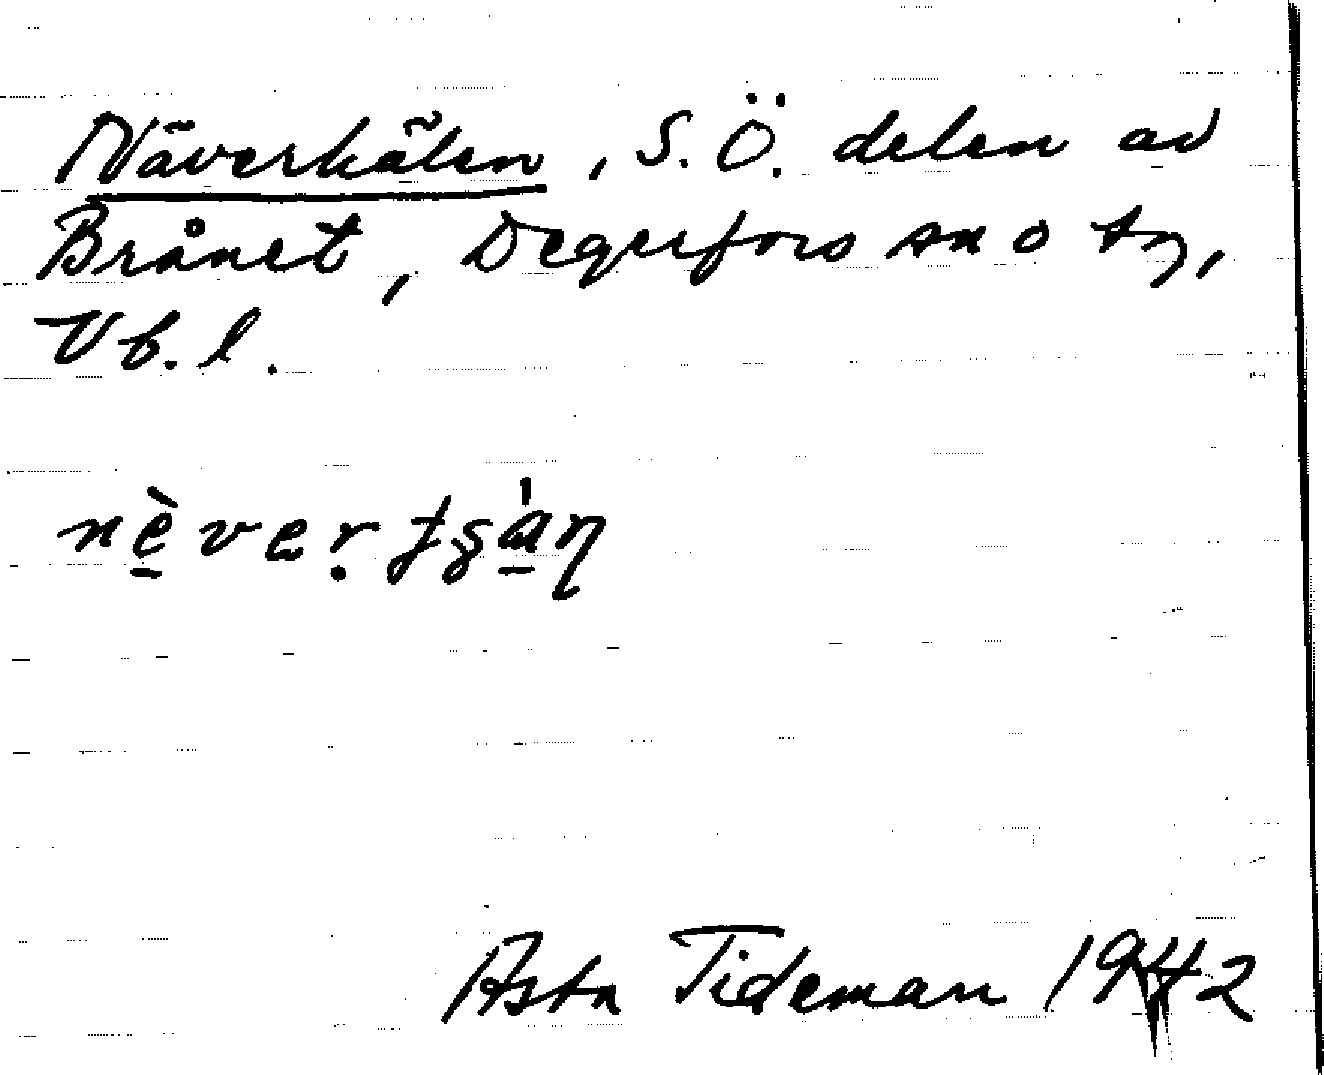 Näverkälen, S.Ö. delen av
Brånet, Degerfors sn o tg,
Vb. l.
Asta Tideman 1942